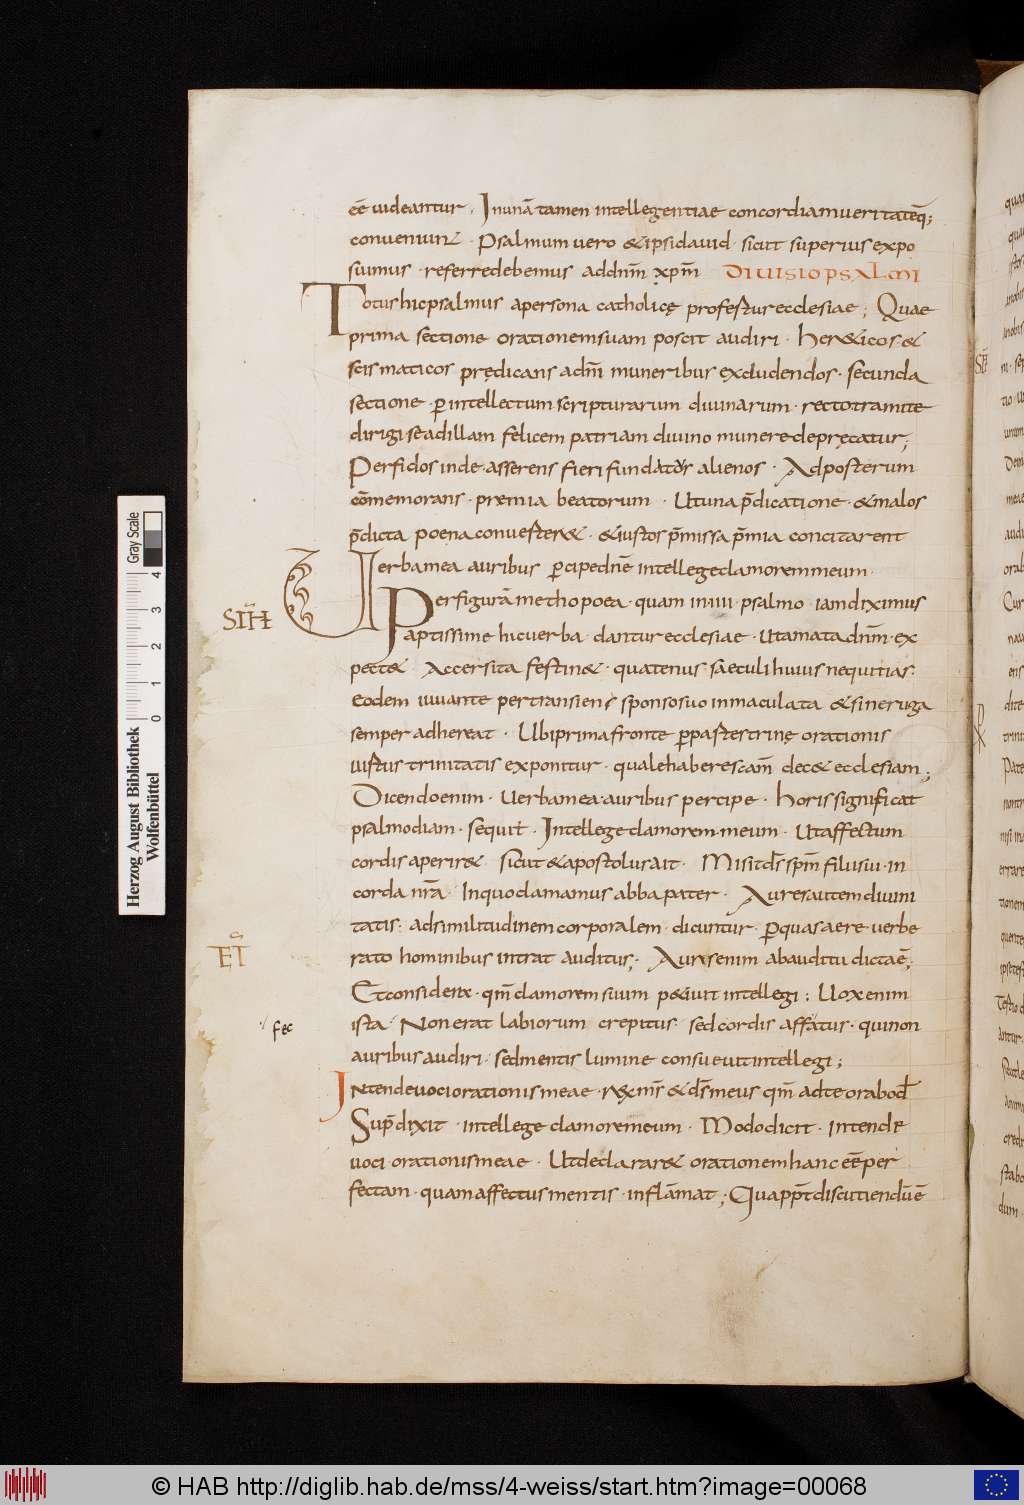 eē uideantur. Inunā tamen intellegentiae concordiam ueritateq̄;
conueniunt. Psalmum uero & ipsi dauid. sicut superius expo
suimus. referre debemus ad dnm̄ xp̄m DIUISIO PSALMI
Totus hic psalmus a persona catholicę profertur ecclesiae; Quae
prima sectione orationem suam poscit audiri. her&icos. &
scismaticos prędicans a dn̄i muneribus excludendos. secunda
sectione. ꝑ intellectum scripturarum diuinarum. recto tramite
dirigi se ad illam felicem patriam diuino munere depręcatur;
Perfidos inde. asserens fieri alienos. Ad posterum
com̄memorans. pręmia beatorum. Ut una p̄dicatione. & malos
p̄dicta poena conuerter&. & iustos p̄missa p̄mia concitarent
Uerba mea auribus ꝑcipe dn̄e intellege clamorem meum.
Per figurā methopoea. quam in iiii. psalmo iam diximus
aptissime hic uerba dantur ecclesiae. ut amata dnm̄. ex
pect&. Accersita festin&. quatenus saeculi huius nequitias.
eodem iuuante pertransiens sponso suo inmaculata & sine ruga
semper adhereat. Ubi prima fronte
uirtus trinitatis exponitur. quale habere scam̄ dec& ecclesiam;
Dicendo enim. uerba mea auribus percipe. horis significat
psalmodiam. sequit̄. Intellege clamorem meum. Ut affectum
cordis aperir&. sicut & apostolus ait. Misit ds̄ spm̄ filii sui. in
corda nr̄a. In quo clamamus abba pater. Aures autem diuini
tatis. ad similitudinem corporalem. dicuntur. ꝑ quas aere uerbe
rato hominibus intrat auditus; Aures enim ab auditu dictaē;
Et considera. qm̄ clamorem suum p&iuit intellegi; Uox enim
ista. Non erat labiorum crepitus. sed cordis affatus. qui non
auribus audiri. sed mentis lumine consueuit intellegi;
Intende uoci orationis meae. rex ms̄ & ds̄ meus qm̄ ad te orabo dn̄e
Sup̄ dixit. intellege clamorem meum. Modo dicit. intende
uoci orationis meae. Ut declarar& orationem hanc eē per
fectam. quam affectus mentis. inflāmat; Quapp̄t discutiendūē
ET
fec
Herzog August Bibliothek
Wolfenbüttel
0 1 2 3 4
Gray Scale
© HAB http://diglib.hab.de/mss/4-weiss/start.htm?image=00068